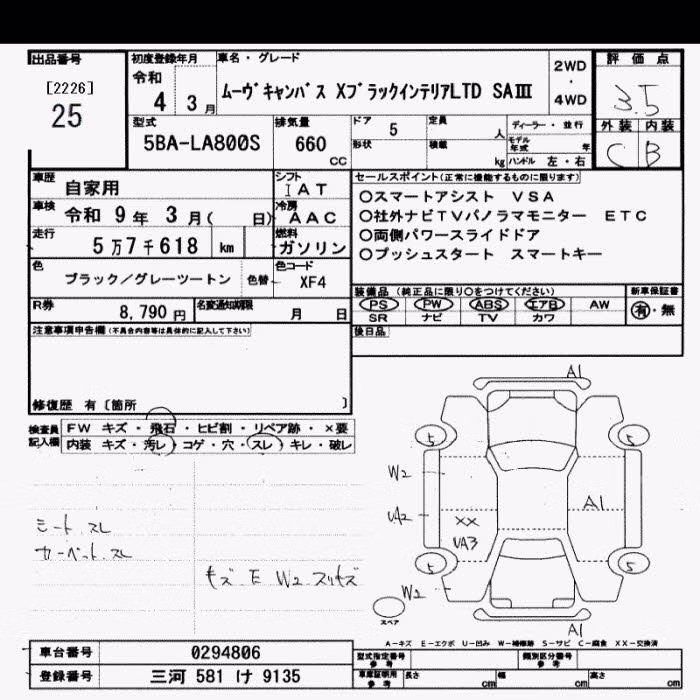 出品番号
[2226]
25
初度登録年月
令和
4 3月
車名・グレード
ムーヴキャンバス XブラックインテリアLTD SAⅢ
2WD
・
4WD
評価点
3.5
外装 内装
C B
型式
5BA-LA800S
排気量
660
cc
ドア 5
形状
定員 人
積載 kg
ディーラー・並行
モデル年式 年
ハンドル 左・右
車歴 自家用
シフト
I AT
車検 令和 9年 3月( 日)
冷房
AAC
走行 5万7千618 km
燃料
ガソリン
色 ブラック/グレーツートン 色替
色コード
XF4
R券 8,790円
名変通知期限 月 日
セールスポイント(正常に機能するものに限ります)
○スマートアシスト VSA
○社外ナビTVパノラマモニター ETC
○両側パワースライドドア
○プッシュスタート スマートキー
装備品(純正品に限り○をつけてください)
新車保証書
PS PW ABS エアB AW
有・無
SR ナビ TV カワ
後日品
注意事項申告欄(不具合内容等は具体的に記入して下さい)
修復歴 有〔箇所 〕
検査員記入欄
FW キズ・飛石・ヒビ割・リペア跡・×要
内装 キズ・汚レ・コゲ・穴・スレ・キレ・破レ
シート スレ
カーペット スレ
キズ E W2 スリキズ
A1
5 5
W2
UA2
XX
UA3
A1
5 5
W2
スペア
A1
A-キズ E-エクボ U-凹み W-補修跡 S-サビ C-腐食 XX-交換済
車台番号 0294806
登録番号 三河 581 け 9135
型式指定番号
参考
類別区分番号
参考
車庫証明用
参考
長さ cm 幅 cm 高さ cm